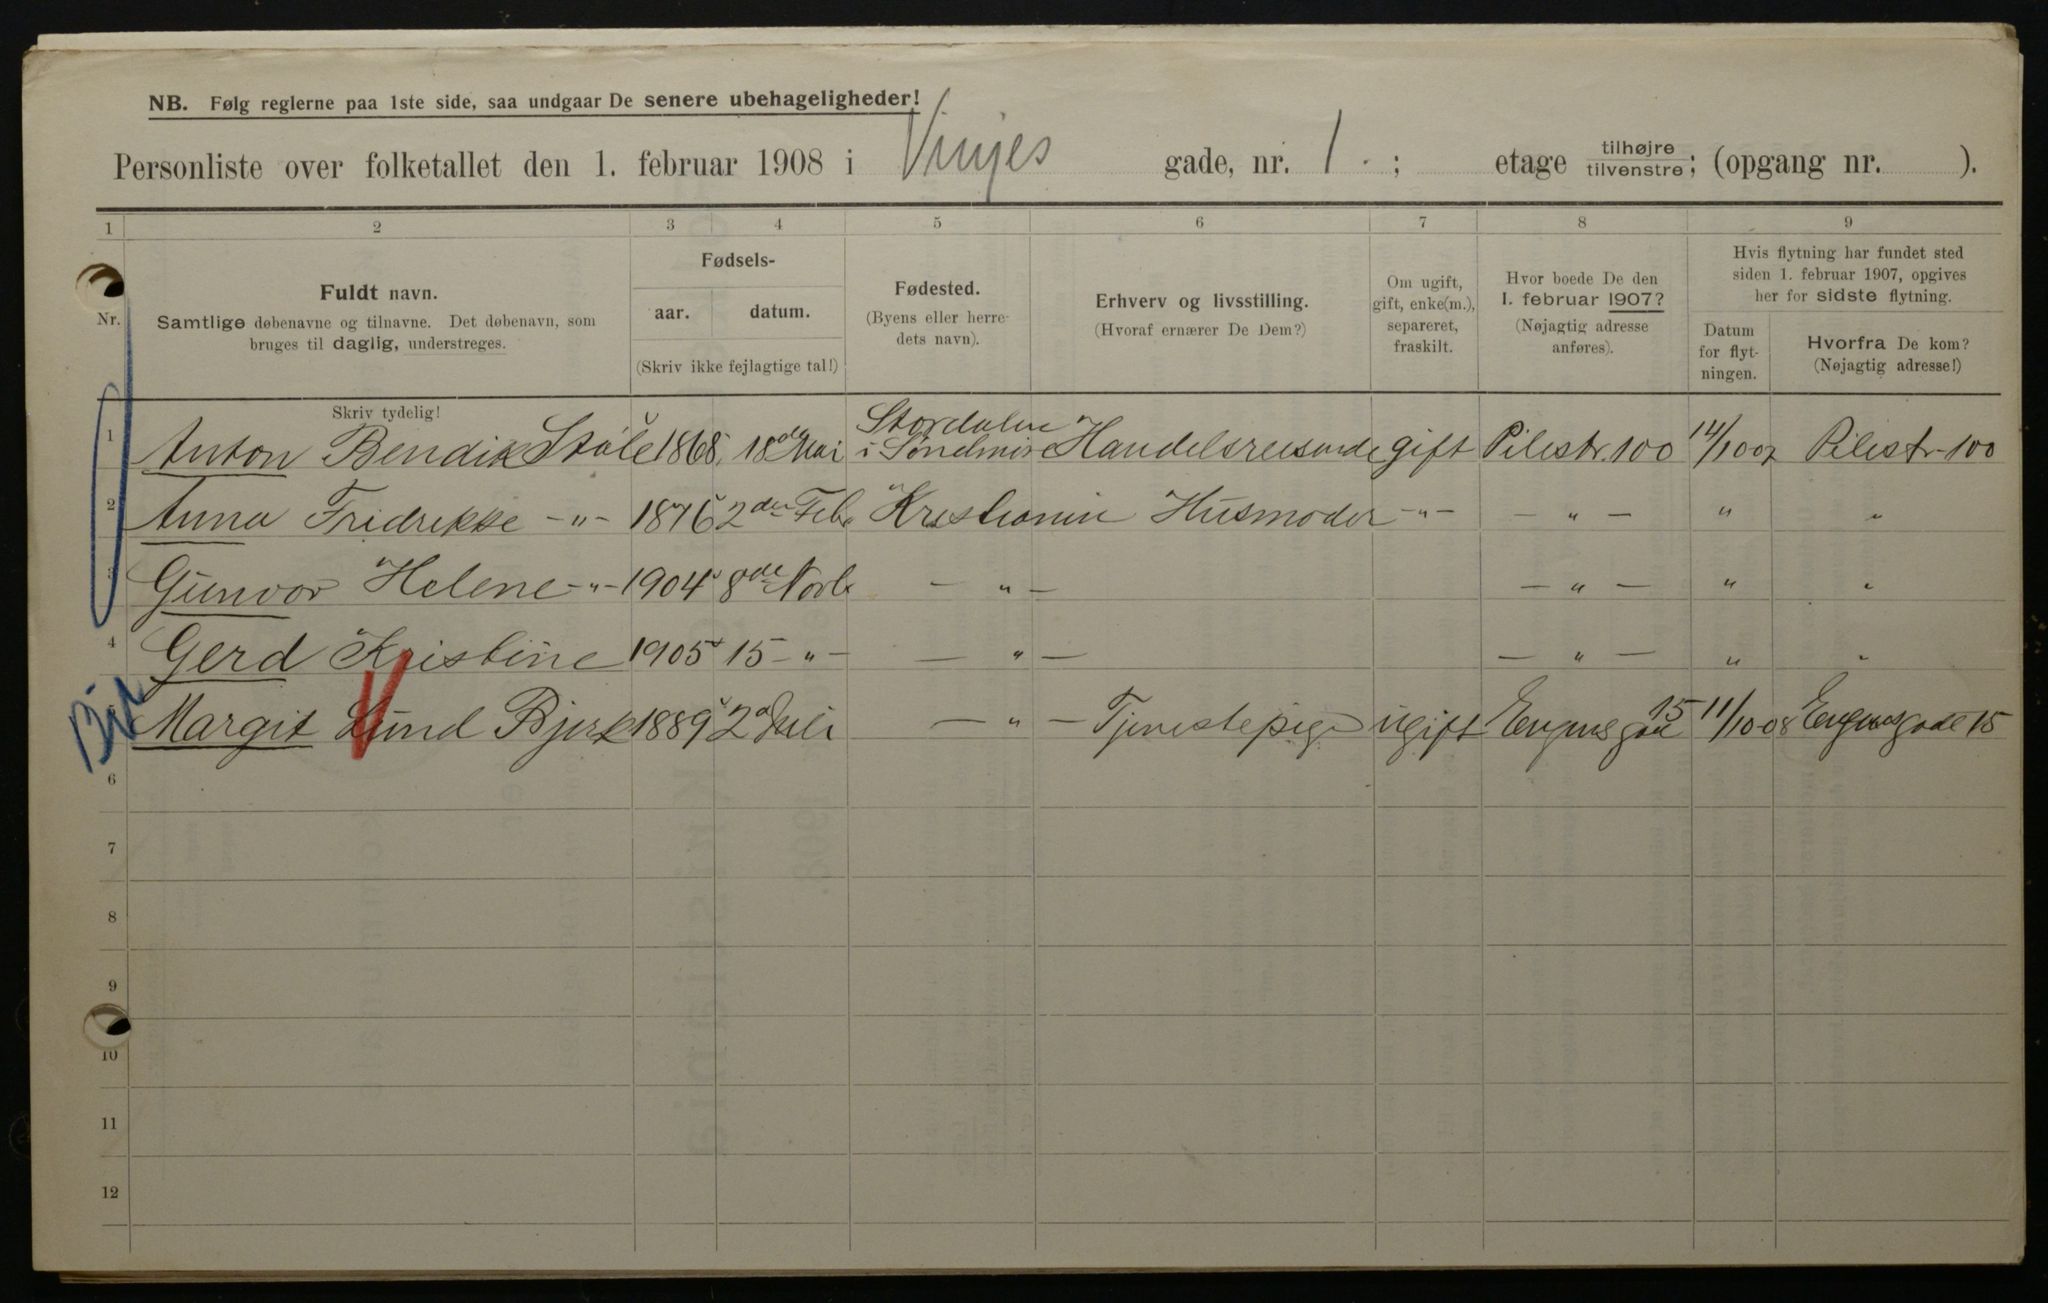 NB. Følg reglerne paa 1ste side, saa undgaar De senere ubehageligheder!
Personliste over folketallet den 1. februar 1908 i Vinjes gade, nr. 1. ; etage tilhøjre tilvenstre; (opgang nr. ).
1 2 3 4 5 6 7 8 9
Nr.
Fuldt navn.
Samtlige døbenavne og tilnavne. Det døbenavn, som
bruges til daglig, understreges.
Skriv tydelig!
Fødsels-
aar. datum.
(Skriv ikke fejlagtige tal!)
Fødested.
(Byens eller herre-
dets navn).
Erhverv og livsstilling.
(Hvoraf ernærer De Dem?)
Om ugift,
gift, enke(m.),
separeret,
fraskilt.
Hvor boede De den
1. februar 1907?
(Nøjagtig adresse
anføres).
Hvis flytning har fundet sted
siden 1. februar 1907, opgives
her for sidste flytning.
Datum
for flyt-
ningen.
Hvorfra De kom?
(Nøjagtig adresse!)
1 Anton Bendik Ståle 1868 18de Mai Stordalen i Søndmøre Handelsreisende gift Pilestr. 100 14/10 07 Pilestr. 100
2 Anna Fridrikke -"- 1876 2den Feb Kristiania Husmoder -"- - " - " "
3 Gunvor Helene -"- 1904 8de Novb - " - - " - " "
4 Gerd Kristine 1905 15 -"- - " - - " - " "
5 Margit Lund Bjerk 1889 2d Juli - " - Tjenestepige ugift 15 11/10-08 15
6
7
8
9
10
11
12